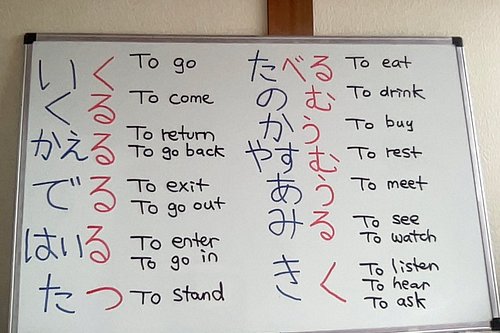 いくTo go
くるTo come
かえるTo return
To go back
でるTo exit
To go out
はいるTo enter
To go in
たつTo stand
たべるTo eat
のむTo drink
かうTo buy
やすむTo rest
あうTo meet
みるTo see
To watch
きくTo listen
To hear
To ask